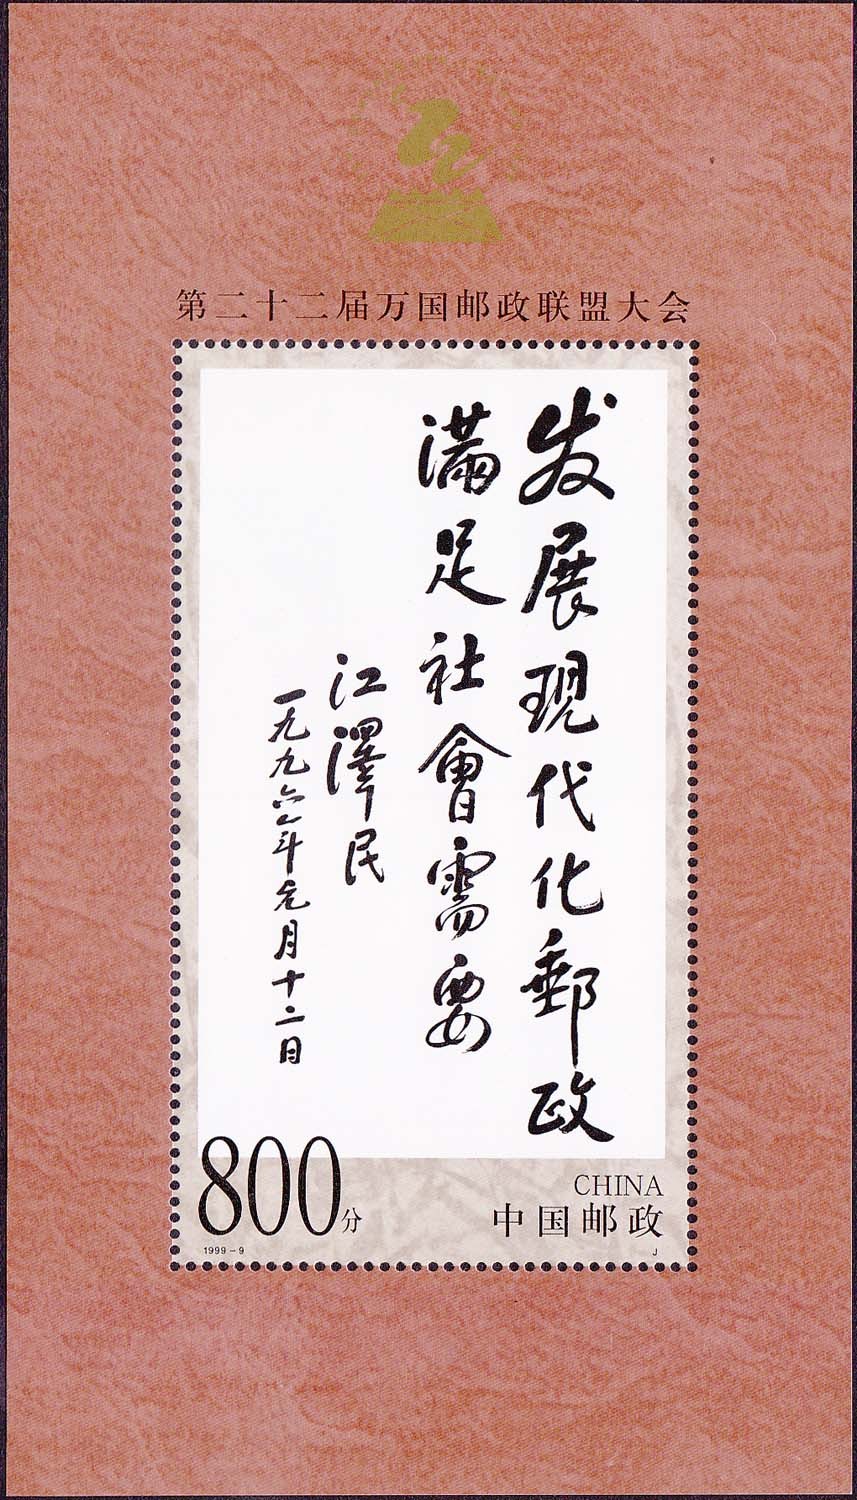 第二十二届万国邮政联盟大会
发展现代化郵政
满足社會需要
江澤民
一九九六年元月十二日
800分
1999-9
CHINA
中国邮政
J